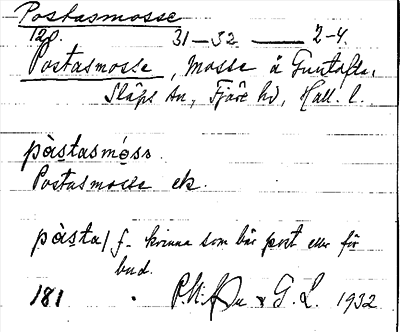 Postasmosse
120. 31—32 —— 2-4.
Postasmosse, Mosse å Guntofta,
Släps sn, Fjäre hd, Hall. l.
pàstasmóss
Postasmosse ek.
pàsta/ f. kvinna som bär post eller för
bud.
181 & G. L. 1932